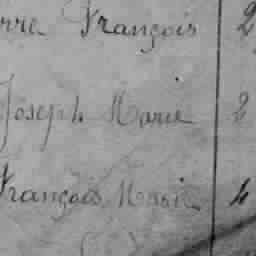 erre François 2
Joseph Marie 2
François Marie 4